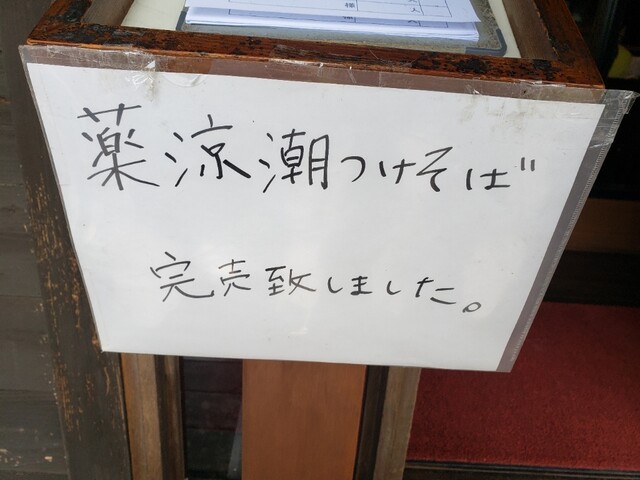 薬涼潮つけそば
完売致しました。